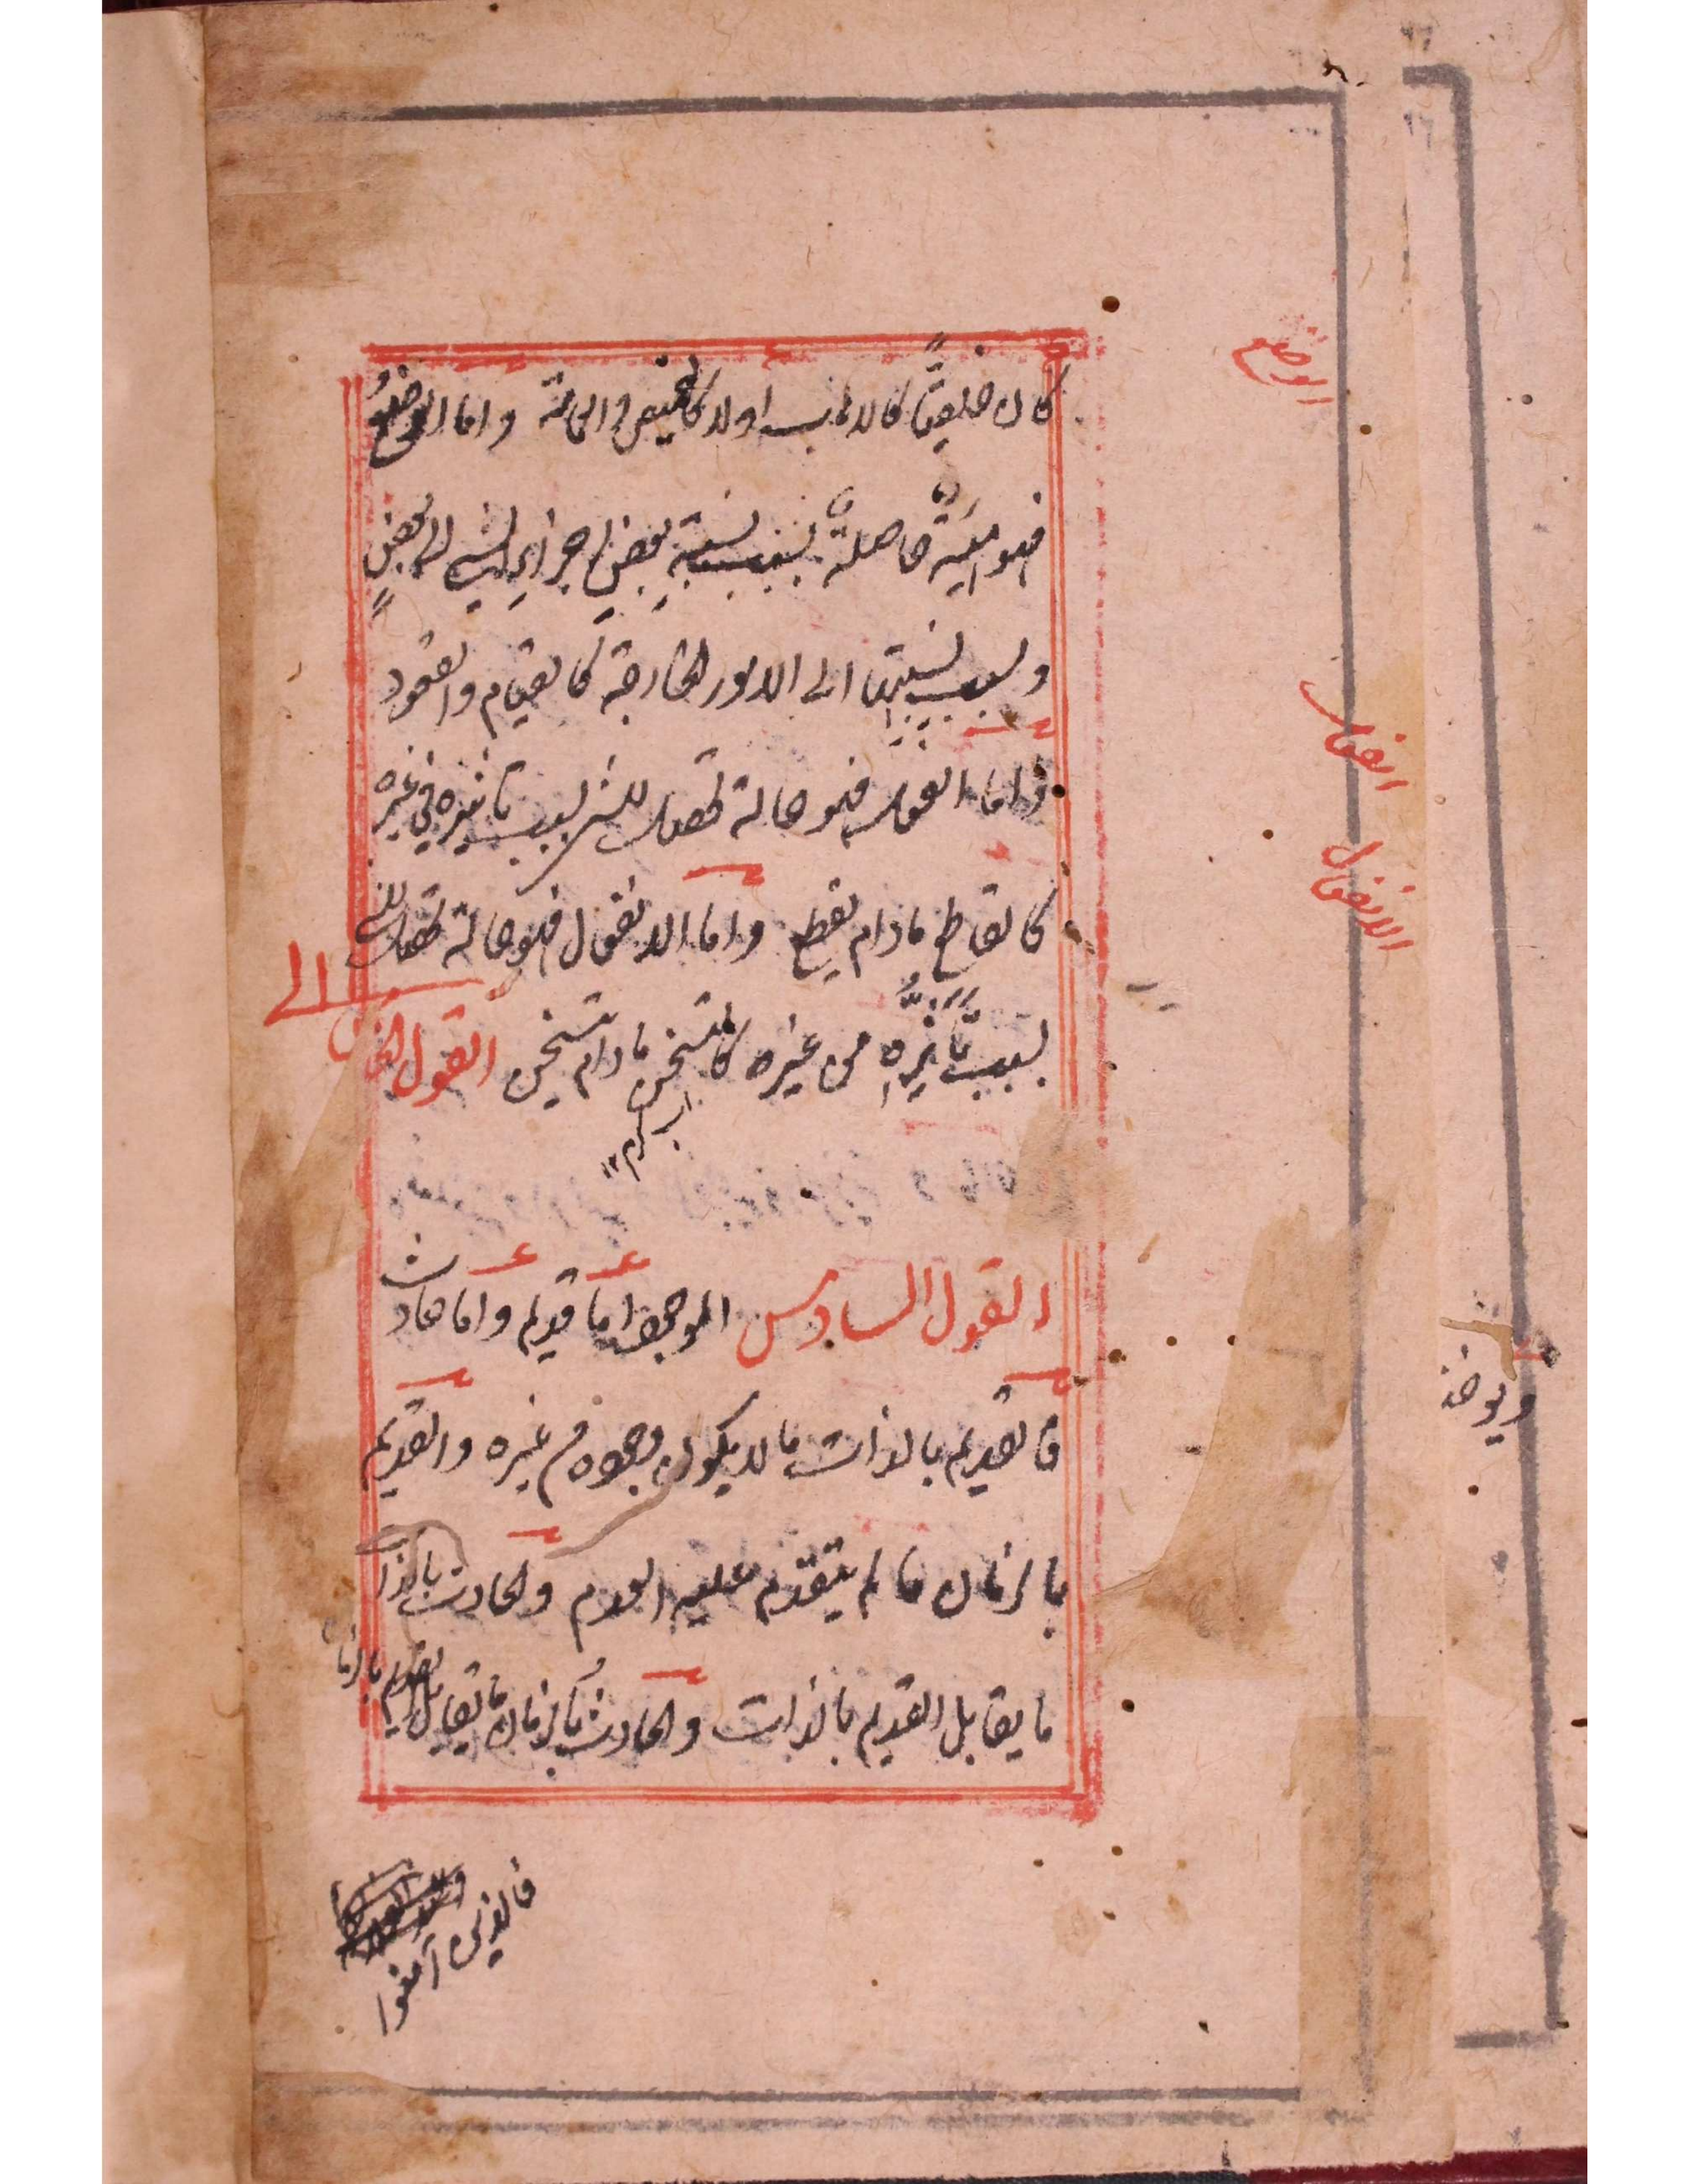 كان خلقيًّا كالاهاب اولا كالقميص والخاتم واما الوضعُ
فهو هيئة حاصلة بسبب نسبة بعضِ اجزاء الشي الى بعضٍ
وبسبب نسبتها الى الامور الخارجة كالقيام والقعود
واما الفعل فهو حالة تحصل للشي بسبب تاثيره في غيره
كالقاطع مادام يقطع واما الانفعال فهو حالة تحصل للشي
بسبب تأثره من غيره كالمتسخن مادام يتسخن القول
القول السادس الموجود اما قديم واما حادث
فالقديم بالذات ما لا يكون وجوده من غيره والقديم
بالزمان ما لم يتقدم عليه العدم والحادث بالذات
ما يقابل القديم بالذات والحادث بالزمان ما يقابل القديم بالزمان
الوضع
الفعل
الانفعال
الى
آب گرم ١٢
ويوخذ
فالذين آمنوا